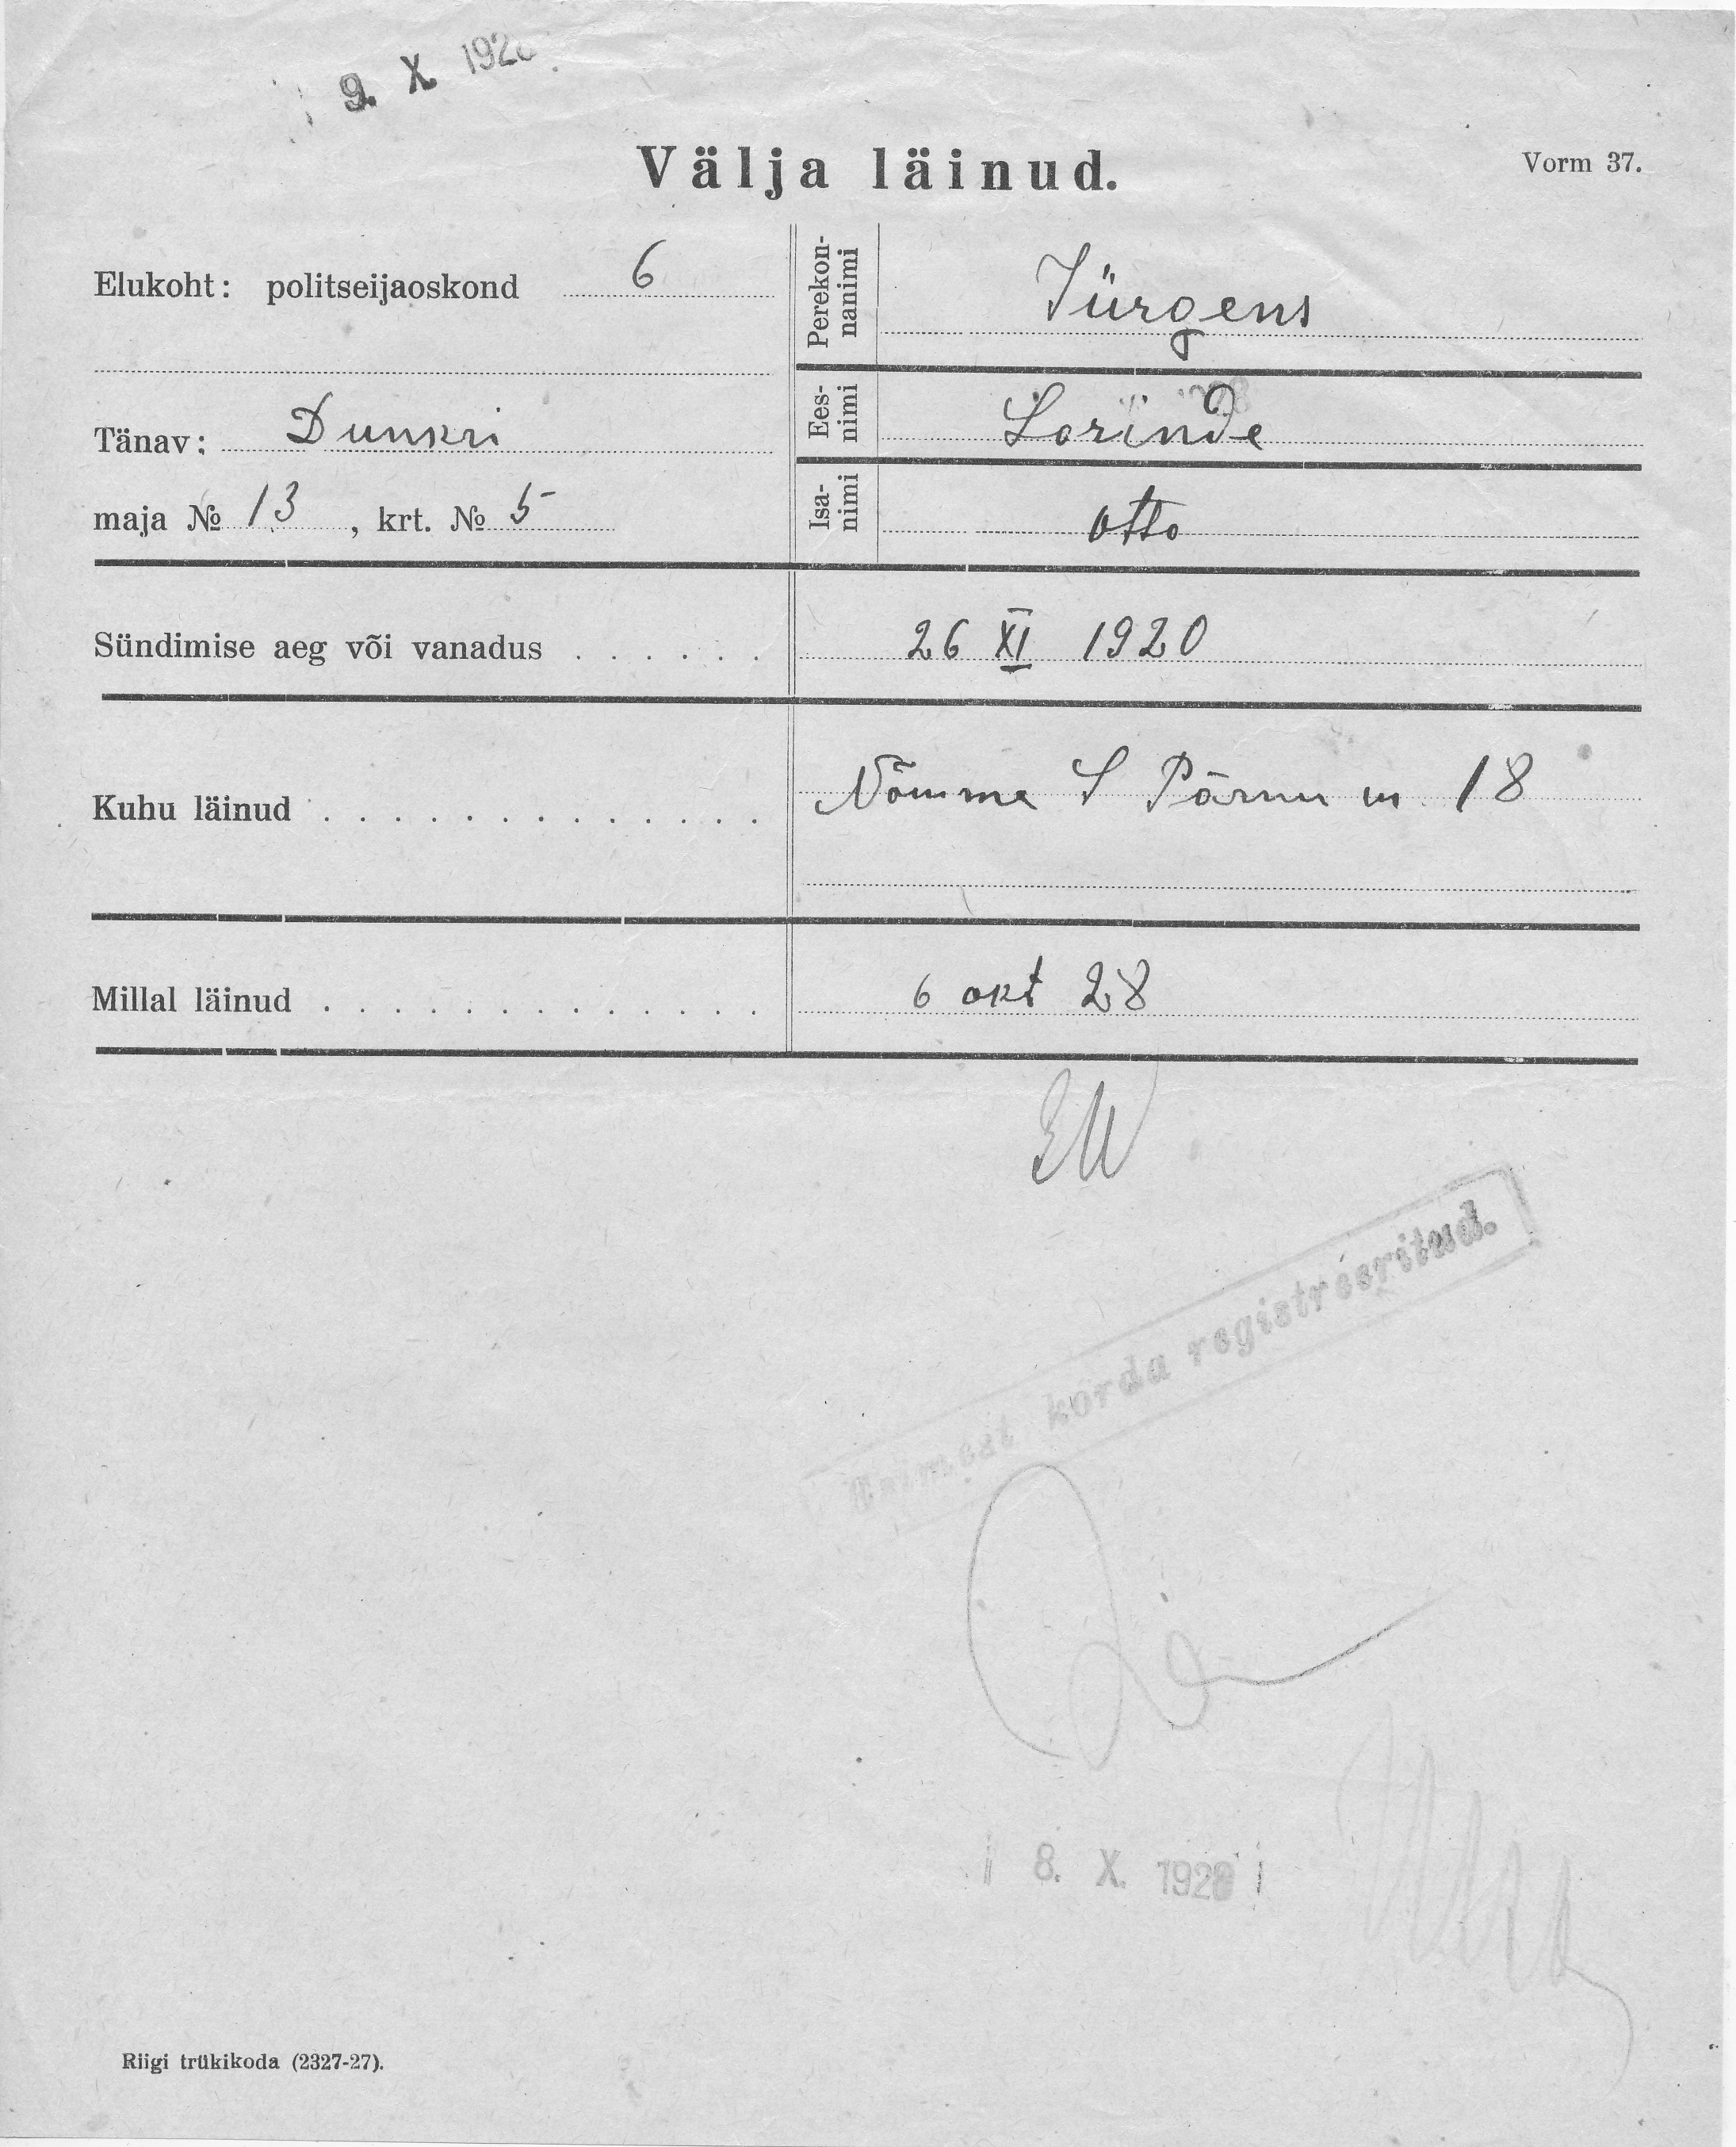 9. X 192
Välja läinud.
Vorm 37.
Elukoht: politseijaoskond 6
Perekon-
nanimi
Jürgens
Tänav: Dunkri
Ees-
nimi
Lorinde
maja № 13, krt. № 5
Isa-
nimi
Otto
Sündimise aeg või vanadus . . . . . . 26 XI 1920
Kuhu läinud . . . . . . . . . . . . . Nõmme S Pärnu m 18
Millal läinud . . . . . . . . . . . . . 6 okt 28
EW
Esimest korda registreeritud.
8. X. 1928
Riigi trükikoda (2327-27).